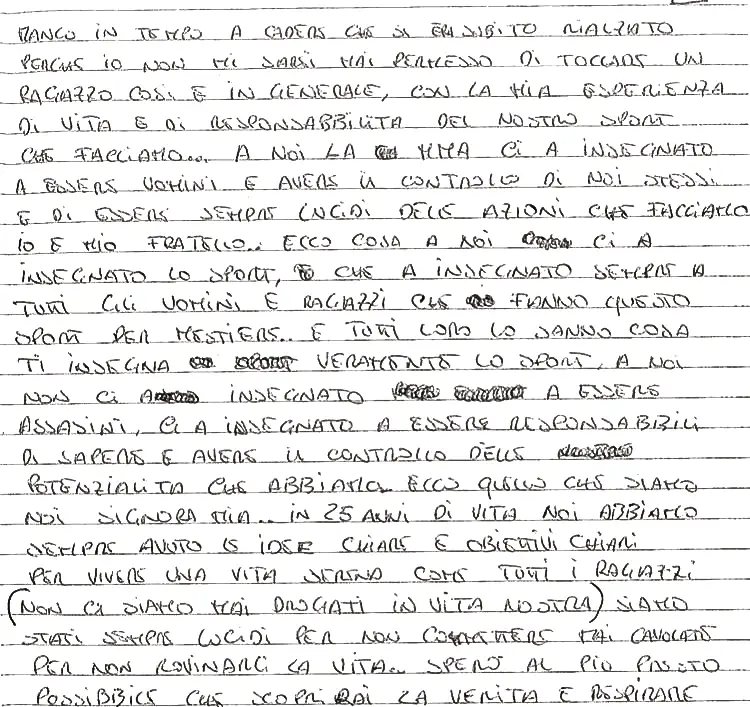 MANCO IN TEMPO A CADERE CHE SI ERA SUBITO RIALZATO
PERCHE IO NON MI SAREI MAI PERMESSO DI TOCCARE UN
RAGAZZO COSI E IN GENERALE, CON LA MIA ESPERIENZA
DI VITA E DI RESPONSABBILITA DEL NOSTRO SPORT
CHE FACCIAMO... A NOI LA MMA CI A INSEGNATO
A ESSERE UOMINI E AVERE IL CONTROLLO DI NOI STESSI
E DI ESSERE SEMPRE LUCIDI DELLE AZIONI CHE FACCIAMO
IO E MIO FRATELLO.. ECCO COSA A NOI CI A
INSEGNATO LO SPORT, CHE A INSEGNATO SEMPRE A
TUTTI GLI UOMINI E RAGAZZI CHE FANNO QUESTO
SPORT PER MESTIERE.. E TUTTI LORO LO SANNO COSA
TI INSEGNA VERAMENTE LO SPORT, A NOI
NON CI A INSEGNATO A ESSERE
ASSASINI, CI A INSEGNATO A ESSERE RESPONSABBILI
DI SAPERE E AVERE IL CONTROLLO DELLE
POTENZIALITA CHE ABBIAMO.. ECCO QUELLO CHE SIAMO
NOI SIGNORA MIA.. IN 25 ANNI DI VITA NOI ABBIAMO
SEMPRE AVUTO LE IDEE CHIARE E OBIETTIVI CHIARI
PER VIVERE UNA VITA SERENA COME TUTTI I RAGAZZI
(NON CI SIAMO MAI DROGATI IN VITA NOSTRA) SIAMO
STATI SEMPRE LUCIDI PER NON COMMETTERE MAI CAVOLATE
PER NON ROVINARCI LA VITA.. SPERO AL PIÙ PRESTO
POSSIBBILE CHE SCOPRIRAI LA VERITA E RESPIRARE